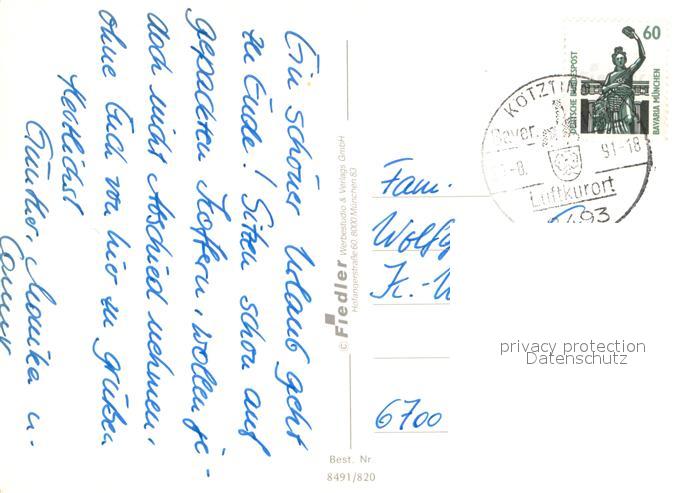 Ein schöner Urlaub geht
zu Ende! Sitzen schon auf
gepackten Koffern, wollen je-
doch nicht Abschied nehmen,
ohne Euch von hier zu grüßen
Herzlichst
Günther, Monika u.
© Fiedler Werbestudio & Verlags GmbH
Hofangerstraße 60, 8000 München 83
Best. Nr.
8491/820
60
DEUTSCHE BUNDESPOST
BAVARIA MÜNCHEN
KÖTZTI
Bayer.
-8. 91-18
Luftkurort
493
Fam.
Wolfg
K.-
6700
privacy protection
Datenschutz